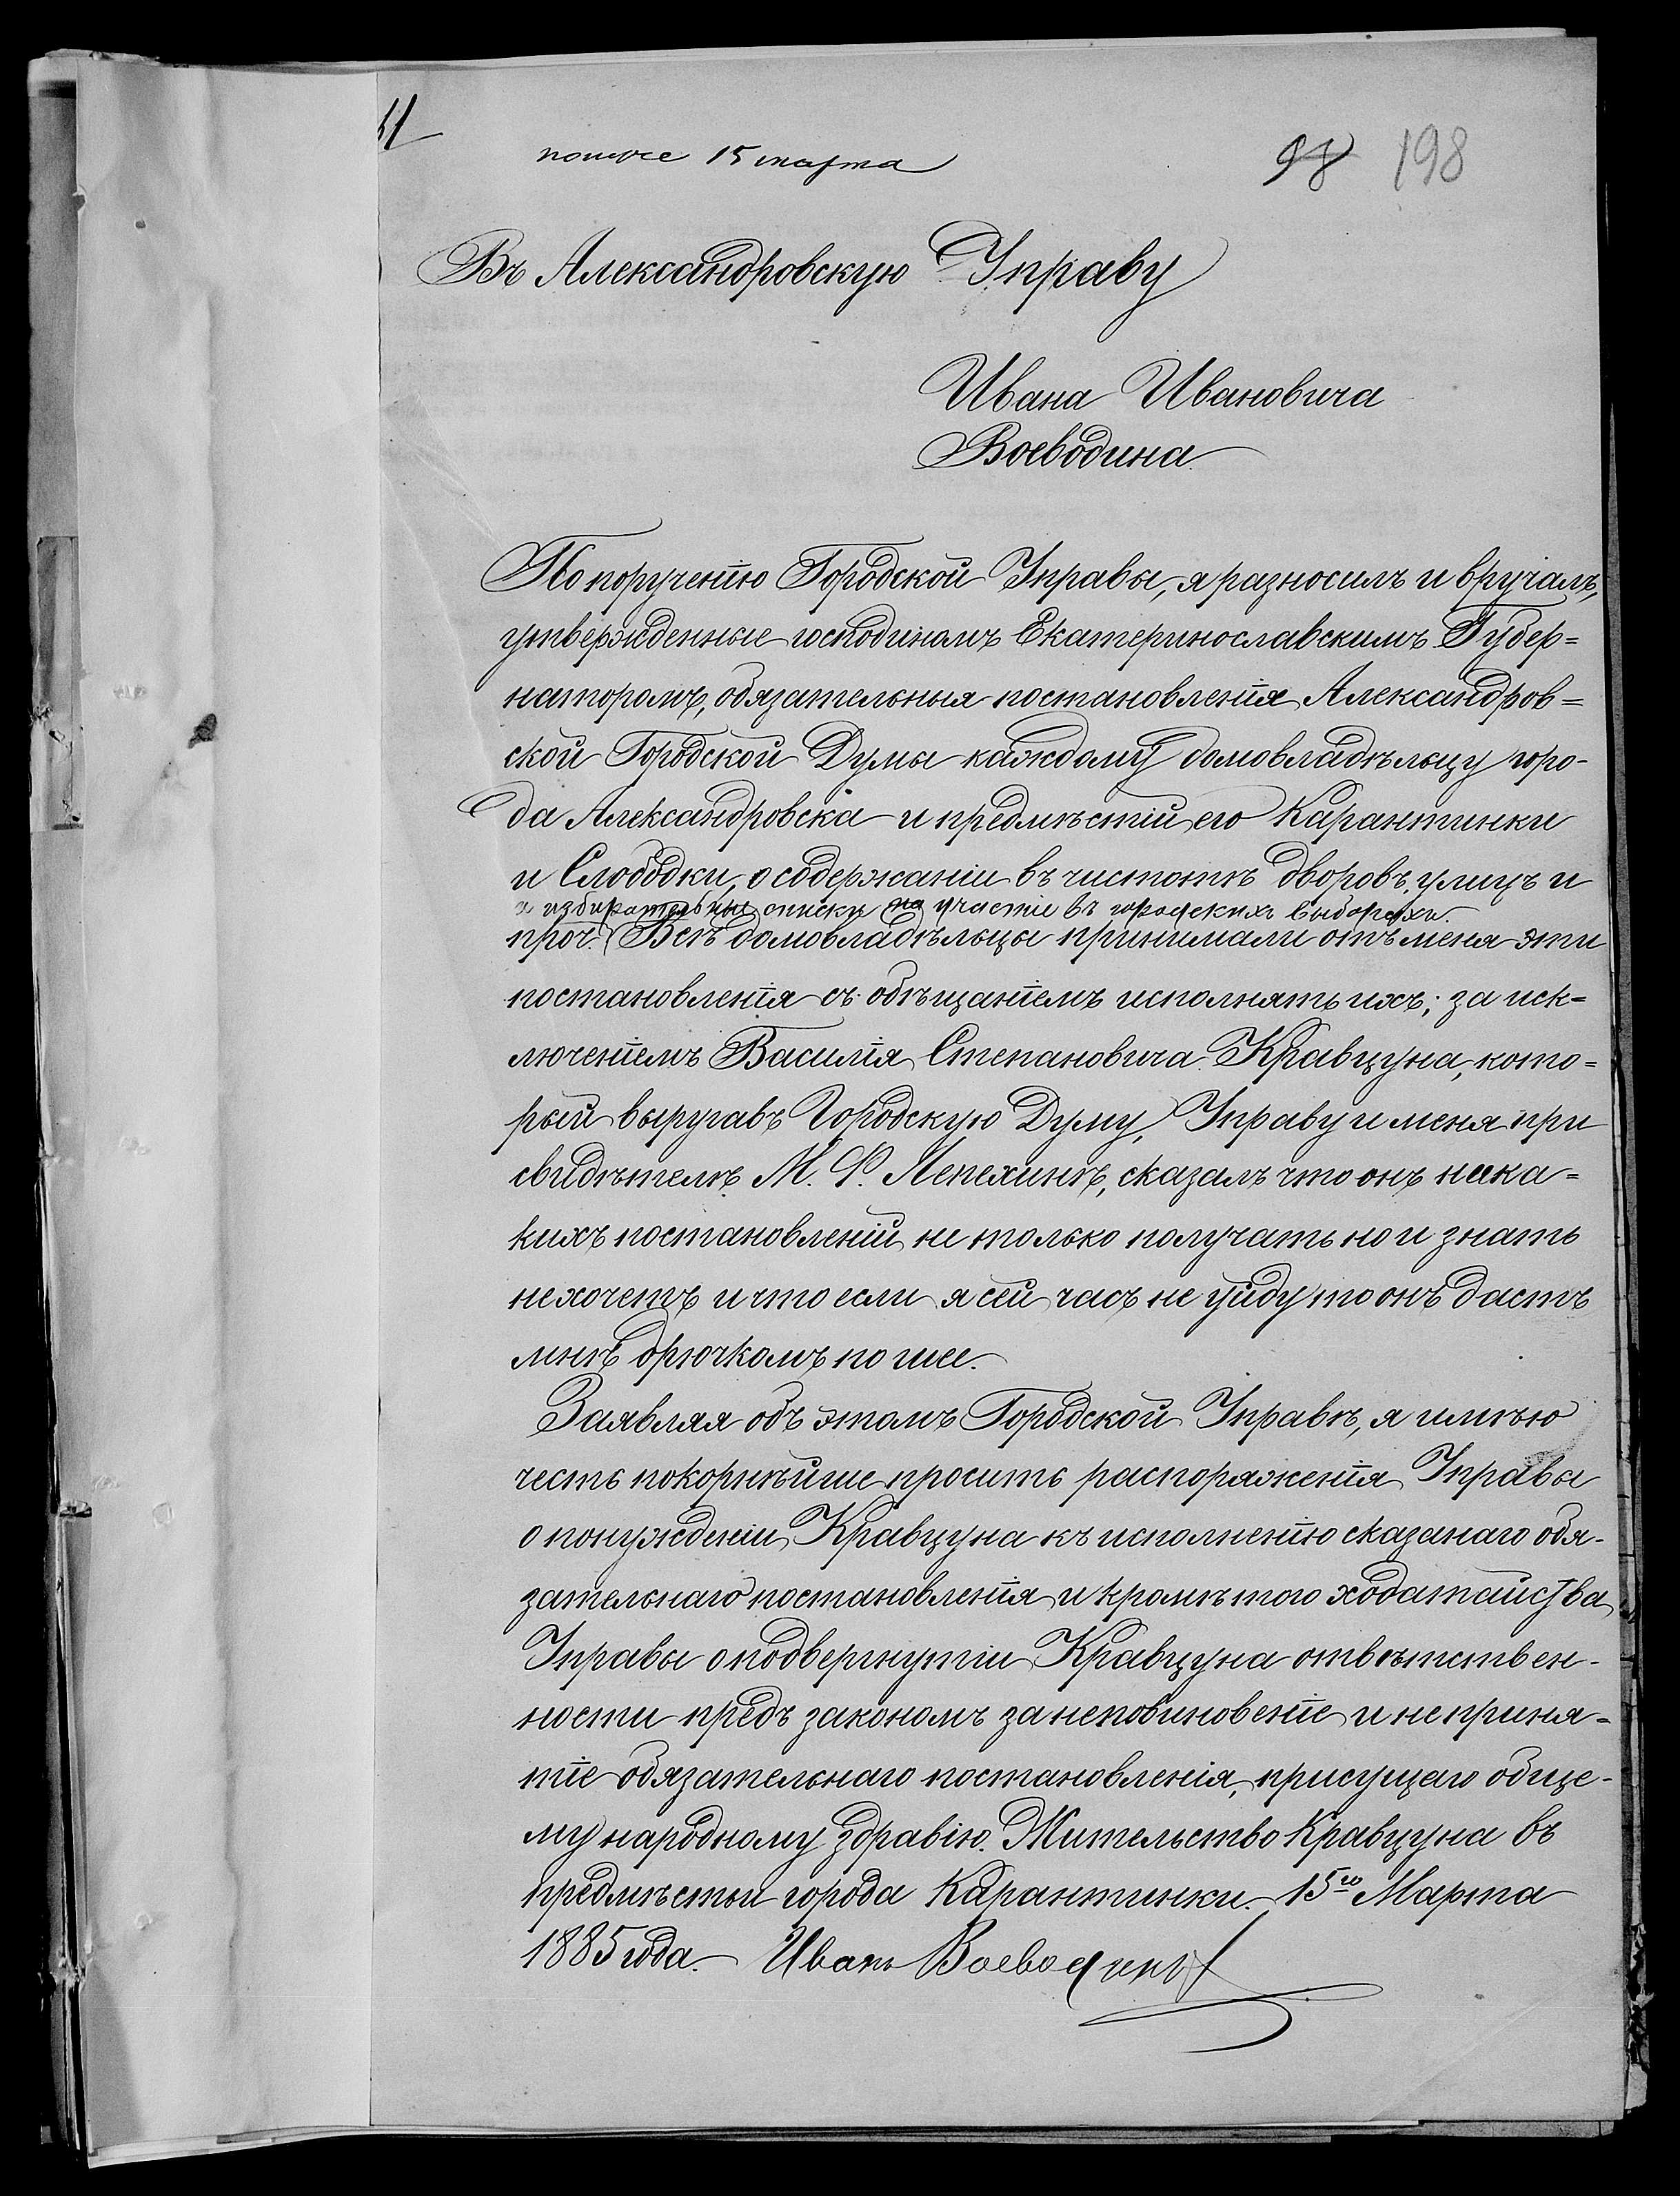 15 марта
98 198
Въ Александровскую Управу
Ивана Ивановича
Воеводина
По порученію Городской Управы, я разносилъ и вручалъ,
утвержденные господиномъ Екатеринославскимъ Губер=
наторомъ, обязательныя постановленія Александров=
ской Городской Думы каждому домовладѣльцу горо-
да Александровска и предмѣстій его Карантинки
и Слободки, о содержаніи въ чистотѣ дворовъ, улицъ и
и избирательные списки на участіе въ городскихъ выборахъ.
проч. Всѣ домовладѣльцы принимали отъ меня эти
постановленія съ обѣщаніемъ исполнять ихъ; за иск=
люченіемъ Василія Степановича Кравцуна, кото=
рый выругавъ Городскую Думу, Управу и меня при
свидѣтелѣ М. Ф. Лепехинѣ, сказалъ что онъ ника=
кихъ постановленій не только получать но и знать
не хочетъ и что если я сей часъ не уйду то онъ дастъ
мнѣ дрючкомъ по шее.
Заявляя объ этомъ Городской Управѣ, я имѣю
честь покорнѣйше просить распоряженія Управы
о понужденіи Кравцуна къ исполненію сказанаго обя-
зательнаго постановленія и кромѣ того ходатайства
Управы о подвергнутіи Кравцуна отвѣтствен-
ности предъ закономъ за неповиновеніе и не приня=
тіе обязательнаго постановленія, присущаго обще-
му народному здравію. Жительство Кравцуна въ
предмѣстьи города Карантинки. 15го Марта
1885 года. Иванъ Воеводинъ